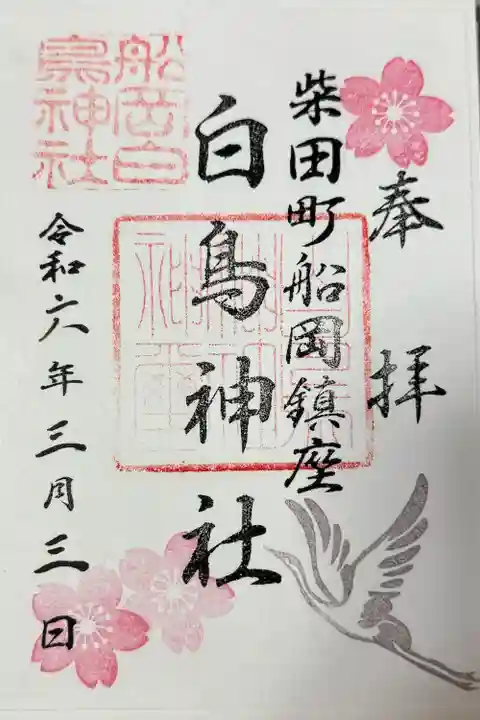 奉拝
柴田町船岡鎮座
白鳥神社
船岡白
鳥神社
令和六年三月三日